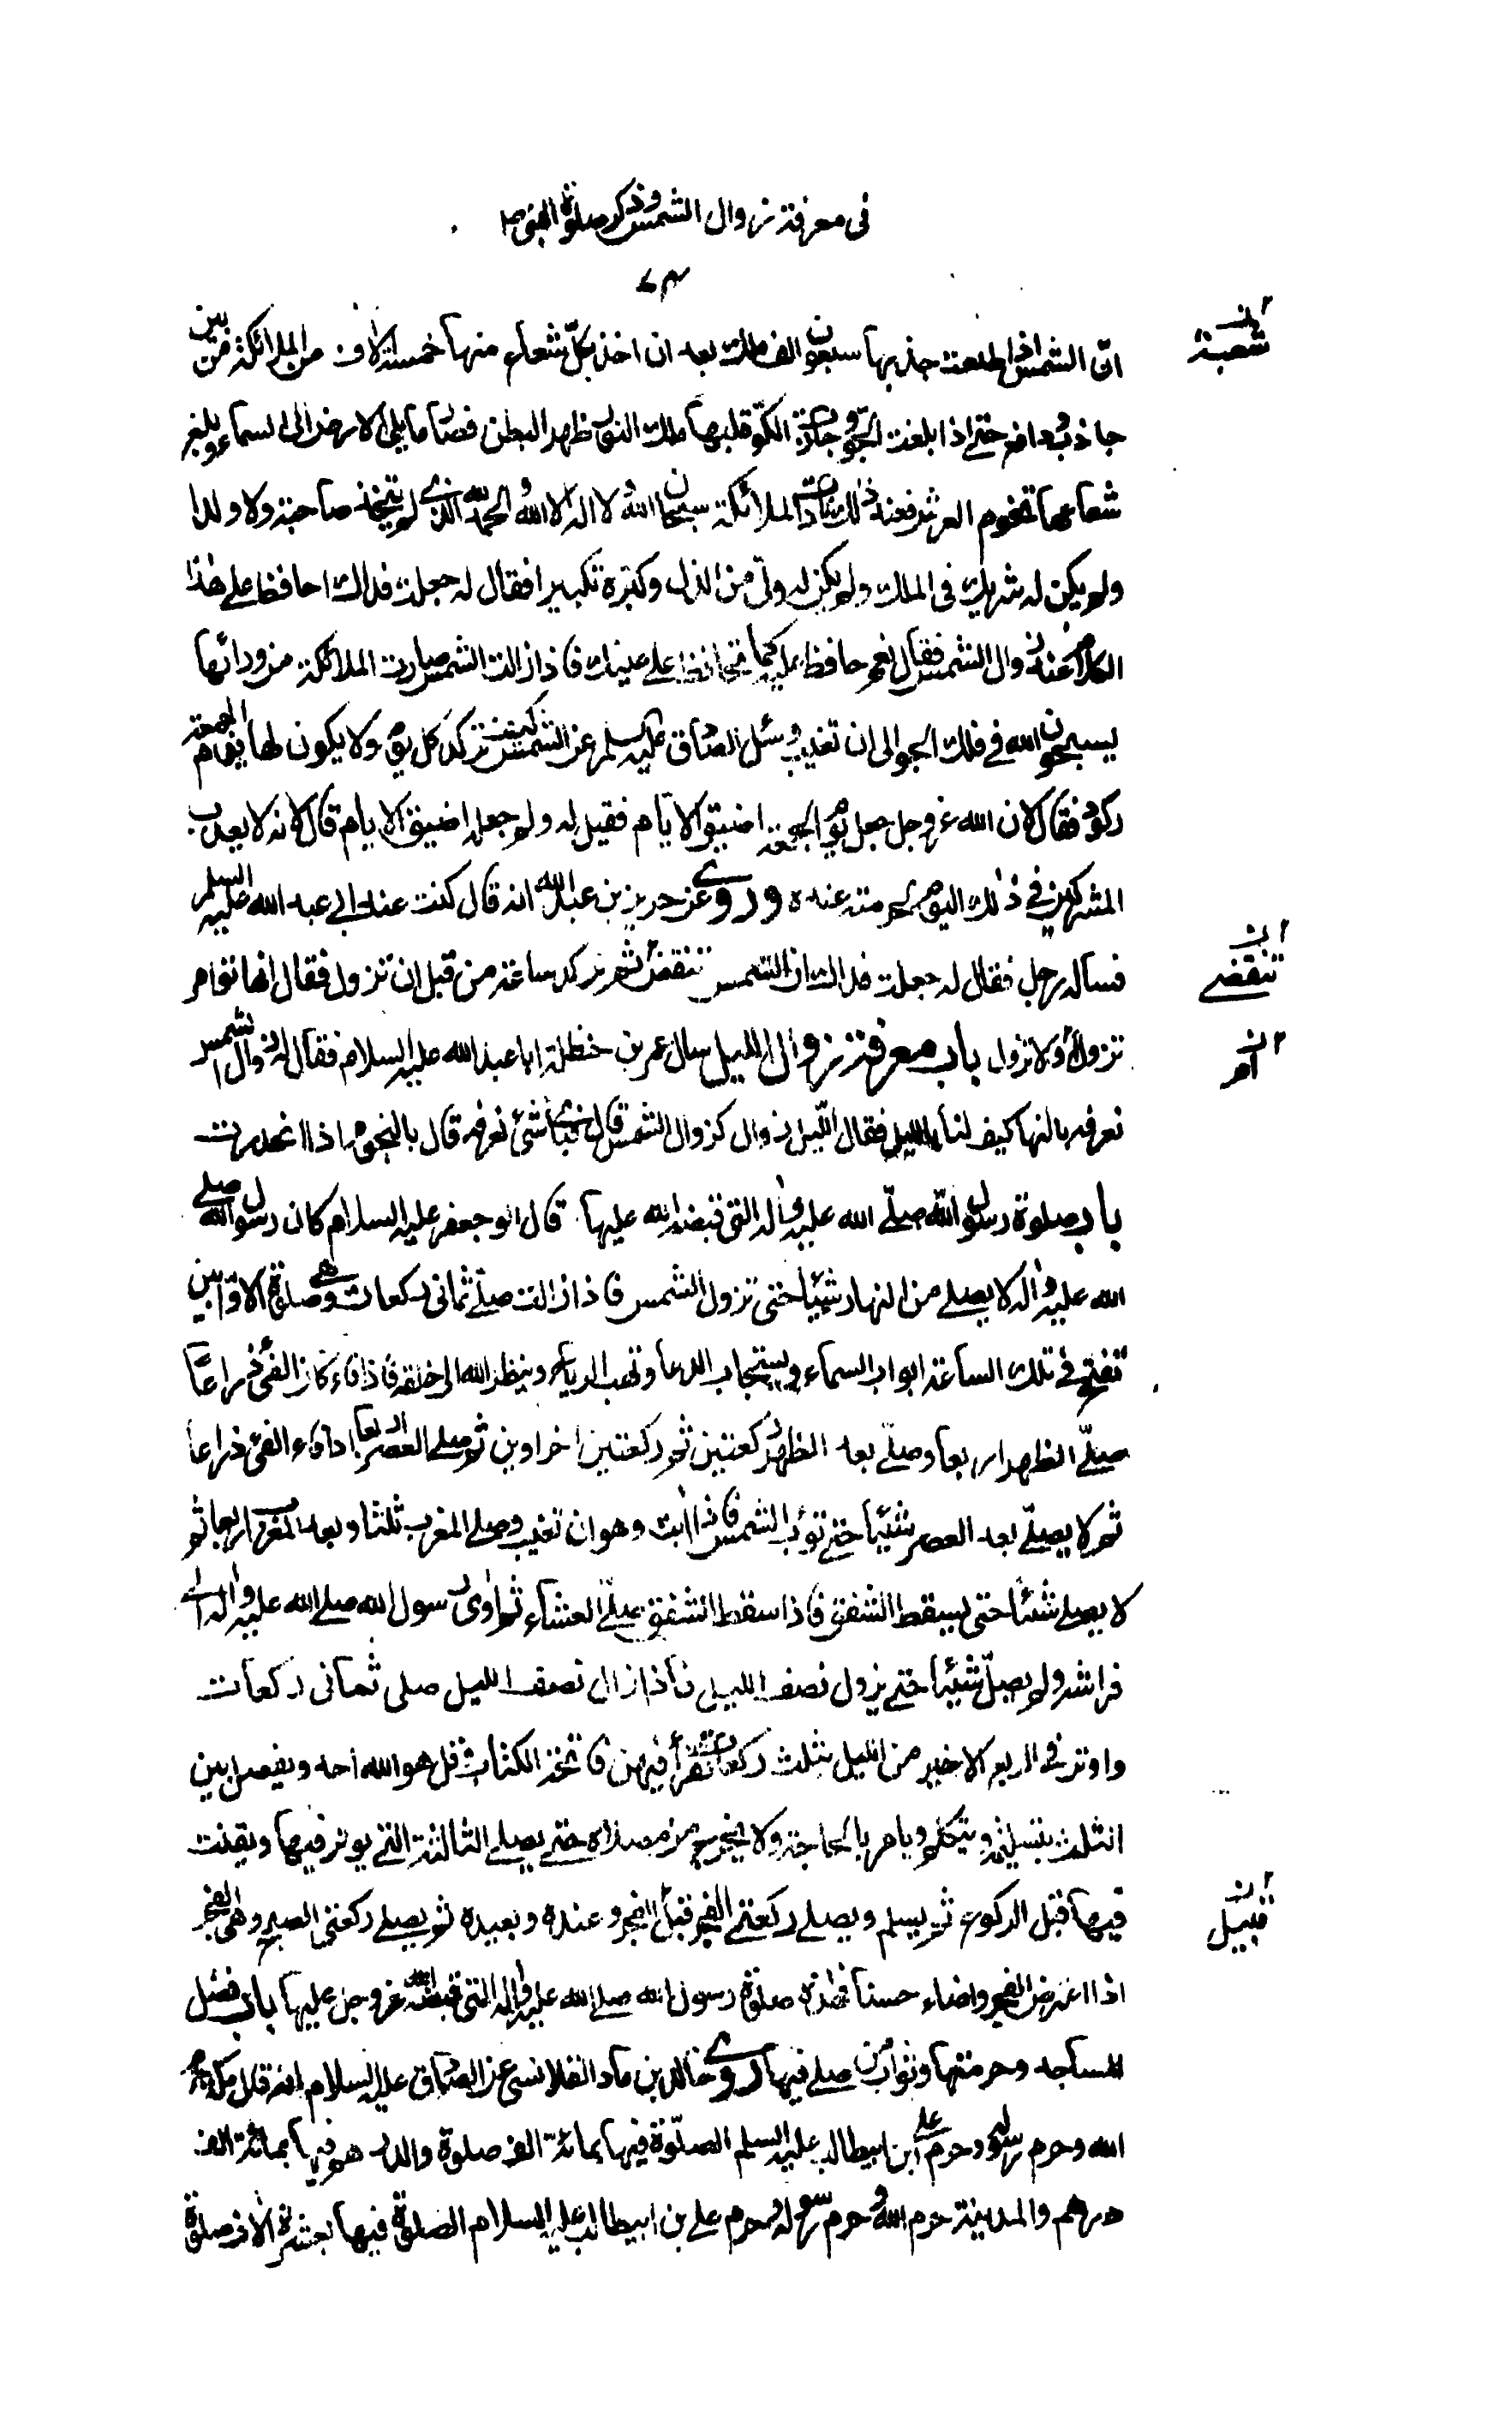 فى معرفة زوال الشمس وذكر صلوة النبى ص
٧٣
ان الشمس اذا طلعت جذبها سبعون الف ملك بعد ان اخذ بكل شعاع منها خمسة الاف من الملائكة من بين
جاذب ودافع حتى اذا بلغت الجو وجازت الكو قلبها ملك النور ظهرا لبطن فصار ما يلى الارض الى السماء وبلغ
شعاعها تخوم العرش فعند ذلك نادت الملائكة سبحان الله ولا اله الا الله والحمد لله الذى لم يتخذ صاحبة ولا ولدا
ولم يكن له شريك فى الملك ولم يكن له ولى من الذل وكبره تكبيرا فقال له جعلت فداك احافظ على هذا
الكلام عند زوال الشمس فقال نعم حافظ عليه كما تحافظ على عينيك فاذا زالت الشمس صارت الملائكة من ورائها
يسبحون الله فى فلك الجو الى ان تغيب وسئل الصادق عليه السلم عن الشمس كيف تركد كل يوم ولا يكون لها يوم الجمعة
ركود فقال لان الله عز وجل جعل يوم الجمعة اضيق الايام فقيل له ولم جعله اضيق الايام قال لانه لا يعذب
المشركين فى ذلك اليوم لحرمته عنده وروى عن حريز بن عبد الله انه قال كنت عند ابى عبد الله عليه السلم
فساله رجل فقال له جعلت فداك ان الشمس تنقض ثم تركد ساعة من قبل ان تزول فقال انها توامر
تزول او لا تزول باب معرفة زوال الليل سال عمر بن حنظلة ابا عبد الله عليه السلام فقال له زوال الشمس
نعرفه بالنهار كيف لنا بالليل فقال الليل زوال كزوال الشمس قال فباى شئ نعرفه قال بالنجوم اذا انحدرت
باب صلوة رسول الله صلى الله عليه واله التى قبضه الله عليها قال ابو جعفر عليه السلام كان رسول الله صلى
الله عليه واله لا يصلى من النهار شيئا حتى تزول الشمس فاذا زالت صلى ثمانى ركعات وهى صلوة الاوابين
تفتح فى تلك الساعة ابواب السماء ويستجاب الدعا وتهب الرياح وينظر الله الى خلقه فاذا فاء كان الفئ ذراعا
صلى الظهر اربعا وصلى بعد الظهر ركعتين ثم ركعتين اخراوين ثم صلى العصر اربعا اذا فاء الفئ ذراعا
ثم لا يصلى بعد العصر شيئا حتى تؤب الشمس فاذا ابت وهو ان تغيب وصلى المغرب ثلثا وبعد المغرب اربعا ثم
لا يصلى شئا حتى يسقط الشفق فاذا سقط الشفق صلى العشاء ثم اوى رسول الله صلى الله عليه واله الى
فراشه ولم يصل شيئا حتى يزول نصف الليل فاذا زال نصف الليل صلى ثمانى ركعات
واوتر فى الربع الاخير من الليل بثلث ركعات يقرأ فيهن فاتحة الكتاب وقل هو الله احد ويفصل بين
الثلث بتسليمة ويتكلم ويامر بالحاجة ولا يخرج من مصلاه حتى يصلى الثالثة التى يوتر فيها ويقنت
فيها قبل الركوع ثم يسلم ويصلى ركعتى الفجر قبل الفجر وعنده وبعيده ثم يصلى ركعتى الصبح وهى الفجر
اذا اعترض الفجر واضاء حسنا فهذه صلوة رسول الله صلى الله عليه واله التى قبضه الله عز وجل عليها باب فضل
المساجد وحرمتها وثواب من صلى فيها روى خالد بن ماد القلانسى عن الصادق عليه السلام انه قال مكة حرم
الله وحرم رسوله وحرم على ابن ابيطالب عليه السلم الصلوة فيها بمائة الف صلوة والدرهم فيها بمائة الف
درهم والمدينة حرم الله وحرم رسوله وحرم على بن ابيطالب عليه السلام الصلوة فيها بعشرة الاف صلوة
شعبة
تنقضى
ام
قبيل